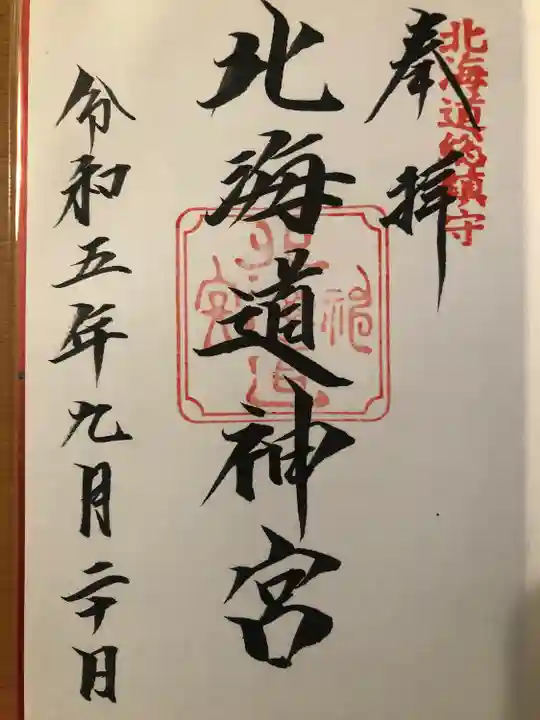 北海道総鎮守
奉拝
北海道神宮
令和五年九月二十日